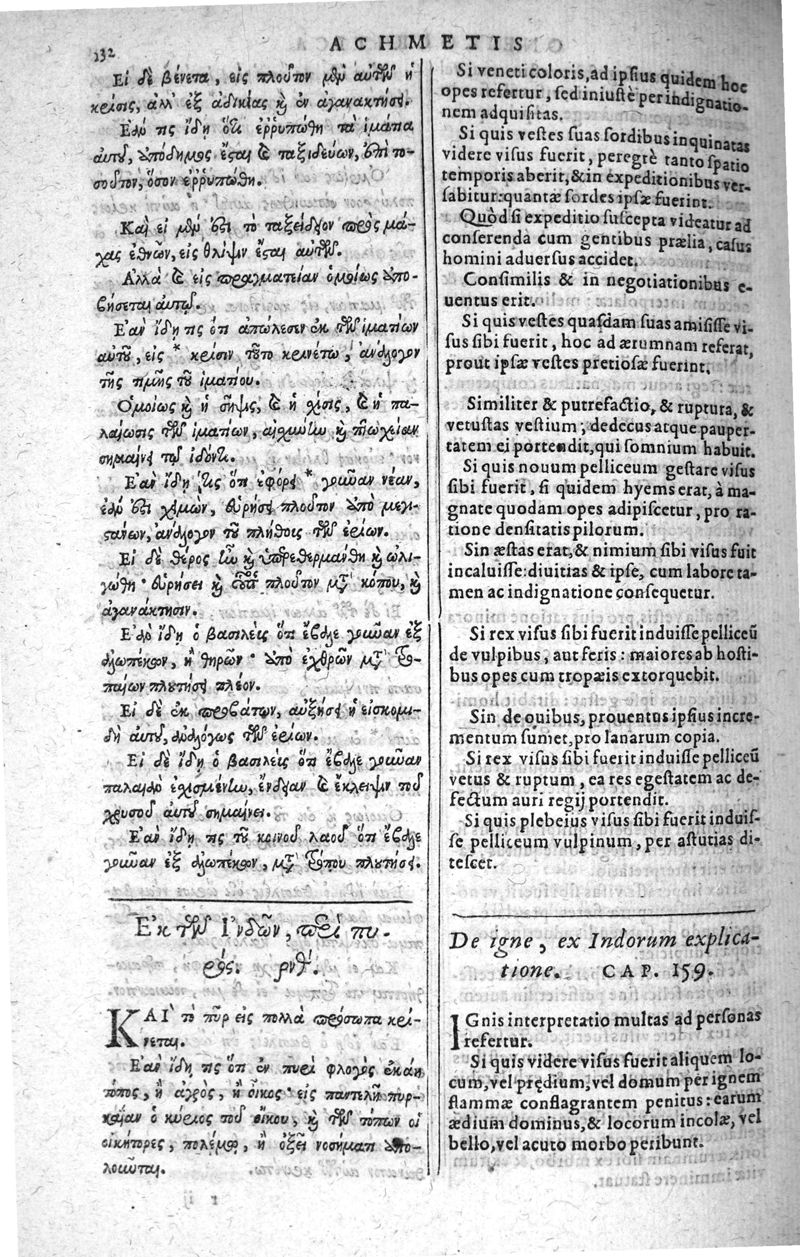 132
ACHMETIS
Εἰ δὲ βένετα, εἰς πλοῦτον μὲν αὐτῶν ἡ
κρίσις, ἀλλ' ἐξ ἀδικίας καὶ ἐν ἀγανακτήσει.
Ἐάν τις ἴδῃ ὅτι ἐῤῥυπώθη τὰ ἱμάτια
αὐτοῦ, ἀπόδημος ἔσται καὶ ταξιδεύων, ἐπὶ το-
σοῦτον, ὅσον ἐῤῥυπώθη.
Καὶ εἰ μέν ἐστι τὸ ταξείδιον πρὸς μά-
χας ἐθνῶν, εἰς θλίψιν ἔσται αὐτῶν.
Ἀλλὰ καὶ εἰς πραγματείαν ὁμοίως ἀπο-
βήσεται αὐτῷ.
Ἐὰν ἴδῃ τις ὅτι ἀπώλεσεν ἐκ τῶν ἱματίων
αὐτοῦ, εἰς * κρίσιν τοῦτο κρινέτω, ἀνάλογον
τῆς τιμῆς τοῦ ἱματίου.
Ὁμοίως καὶ ἡ σῆψις, καὶ ἡ σχίσις, καὶ ἡ πα-
λαίωσις τῶν ἱματίων, αἰσχύνην καὶ πτωχείαν
σημαίνει τῷ ἰδόντι.
Ἐὰν ἴδῃ τις ὅτι ἐφόρει * γοῦναν νέαν,
ἐὰν ἐστι χειμών, εὑρήσει πλοῦτον ἀπὸ μεγι-
στάνων, ἀνάλογον τοῦ πλήθους τῶν ἐρίων.
Εἰ δὲ θέρος ἦν καὶ ὑπερεθερμάνθη καὶ ὠλι-
γώθη· εὑρήσει καὶ οὗτος πλοῦτον μετὰ κόπου, καὶ
ἀγανάκτησιν.
Ἐὰν ἴδῃ ὁ βασιλεὺς ὅτι ἔβαλε γοῦναν ἐξ
ἀλωπέκων, ἢ θηρῶν· ἀπὸ ἐχθρῶν μετὰ τρο-
παίων πλουτήσει πλέον.
Εἰ δὲ ἐκ προβάτων, αὐξήσει ἡ εἰσκομι-
δὴ αὐτοῦ, ἀναλόγως τῶν ἐρίων.
Εἰ δὲ ἴδῃ ὁ βασιλεὺς ὅτι ἔβαλε γοῦναν
παλαιὰν ἐσχισμένην, ἔνδειαν καὶ ἔκλειψιν τοῦ
χρυσοῦ αὐτοῦ σημαίνει.
Ἐὰν ἴδῃ τις τοῦ κοινοῦ λαοῦ ὅτι ἔβαλε
γοῦναν ἐξ ἀλωπέκων, μετὰ τρόπου πλουτήσει.
Ἐκ τῶν Ἰνδῶν, περὶ πυ-
ρός. ρνθ΄.
ΚΑΙ τὸ πῦρ εἰς πολλὰ πρόσωπα κρί-
νεται.
Ἐὰν ἴδῃ τις ὅτι ἐν πυρὶ φλογὸς ἐκάη
τόπος, ἢ ἀγρὸς, ἢ οἶκος εἰς παντελῆ πυρ-
καϊὰν ὁ κύριος τοῦ οἴκου, καὶ τῶν τόπων οἱ
οἰκήτορες, πολέμῳ, ἢ ὀξεῖ νοσήματι ἀπο-
λοῦνται.
r ij
Si veneti coloris, ad ipsius quidem hoc
opes refertur, sed iniustè per indignatio-
nem adquisitas.
Si quis vestes suas sordibus inquinatas
videre visus fuerit, peregrè tanto spatio
temporis aberit, & in expeditionibus ver-
sabitur: quantæ sordes ipsæ fuerint.
Quòd si expeditio suscepta videatur ad
conferenda cum gentibus prælia, casus
homini aduersus accidet.
Consimilis & in negotiationibus e-
uentus erit.
Si quis vestes quasdam suas amisisse vi-
sus sibi fuerit, hoc ad ærumnam referat,
prout ipsæ vestes pretiosæ fuerint.
Similiter & putrefactio, & ruptura, &
vetustas vestium, dedecus atque pauper-
tatem ei portendit, qui somnium habuit.
Si quis nouum pelliceum gestare visus
sibi fuerit, si quidem hyems erat, à ma-
gnate quodam opes adipiscetur, pro ra-
tione densitatis pilorum.
Sin æstas erat, & nimium sibi visus fuit
incaluisse: diuitias & ipse, cum labore ta-
men ac indignatione consequetur.
Si rex visus sibi fuerit induisse pelliceū
de vulpibus, aut feris: maiores ab hosti-
bus opes cum tropæis extorquebit.
Sin de ouibus, prouentus ipsius incre-
mentum sumet, pro lanarum copia.
Si rex visus sibi fuerit induisse pelliceū
vetus & ruptum, ea res egestatem ac de-
fectum auri regij portendit.
Si quis plebeius visus sibi fuerit induis-
se pelliceum vulpinum, per astutias di-
tescet.
De igne, ex Indorum explica-
tione. CAP. 159.
IGnis interpretatio multas ad personas
refertur.
Si quis videre visus fuerit aliquem lo-
cum, vel prędium, vel domum per ignem
flammæ conflagrantem penitus: earum
ædium dominus, & locorum incolæ, vel
bello, vel acuto morbo peribunt.